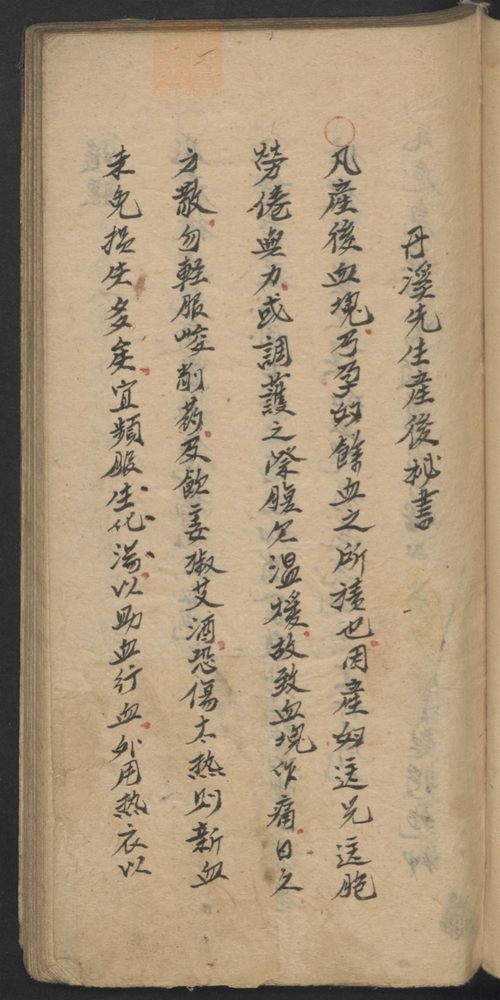 丹溪先生産後秘書
凡産後血塊乃孕婦餘血之所積也因産婦送兒送胞
勞倦無力或調護之際腹欠温煖故致血塊作痛日久
方散勿軽服峻削药及飲姜椒艾酒恐傷太热则新血
未免損失多矣宜頻服生化湯以助血行血外用热衣以